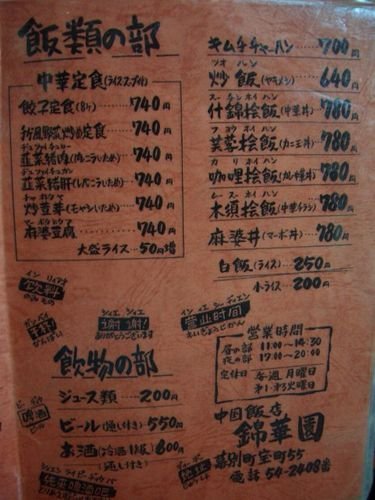 飯類の部
中華定食(ライス.スープ付)
餃子定食(8ヶ)……740円
野菜炒め定食……740円
韮菜猪肉(肉ニラいため)…740円
韮菜猪肝(レバニラいため)…740円
炒荳芽(モヤシいため)…740円
麻婆豆腐………740円
大盛ライス…50円増
キムチチャーハン…700円
炒飯(ヤキメシ)…640円
什錦桧飯(中華丼)780円
芙蓉桧飯(カニ玉丼)780円
咖喱桧飯(カレー丼)780円
木須桧飯(中華チラシ)780円
麻婆丼(マーボ丼)…780円
白飯(ライス)…250円
小ライス…200円
シェイ シェイ
謝謝!
ありがとうございます
イン イエ シー ディエン
営业时间
えいぎょうじかん
営業時間
昼の部 11:00〜14:30
夜の部 17:00〜20:00
定休日 毎週月曜日
第1.第3火曜日
飲物の部
ジュース類……200円
ビール(通し付き)…550円
お酒(冷酒1級)600円
(通し付き)
啤酒
ビール
中国飯店
錦華園
幕別町宝町55
電話 54-2408番